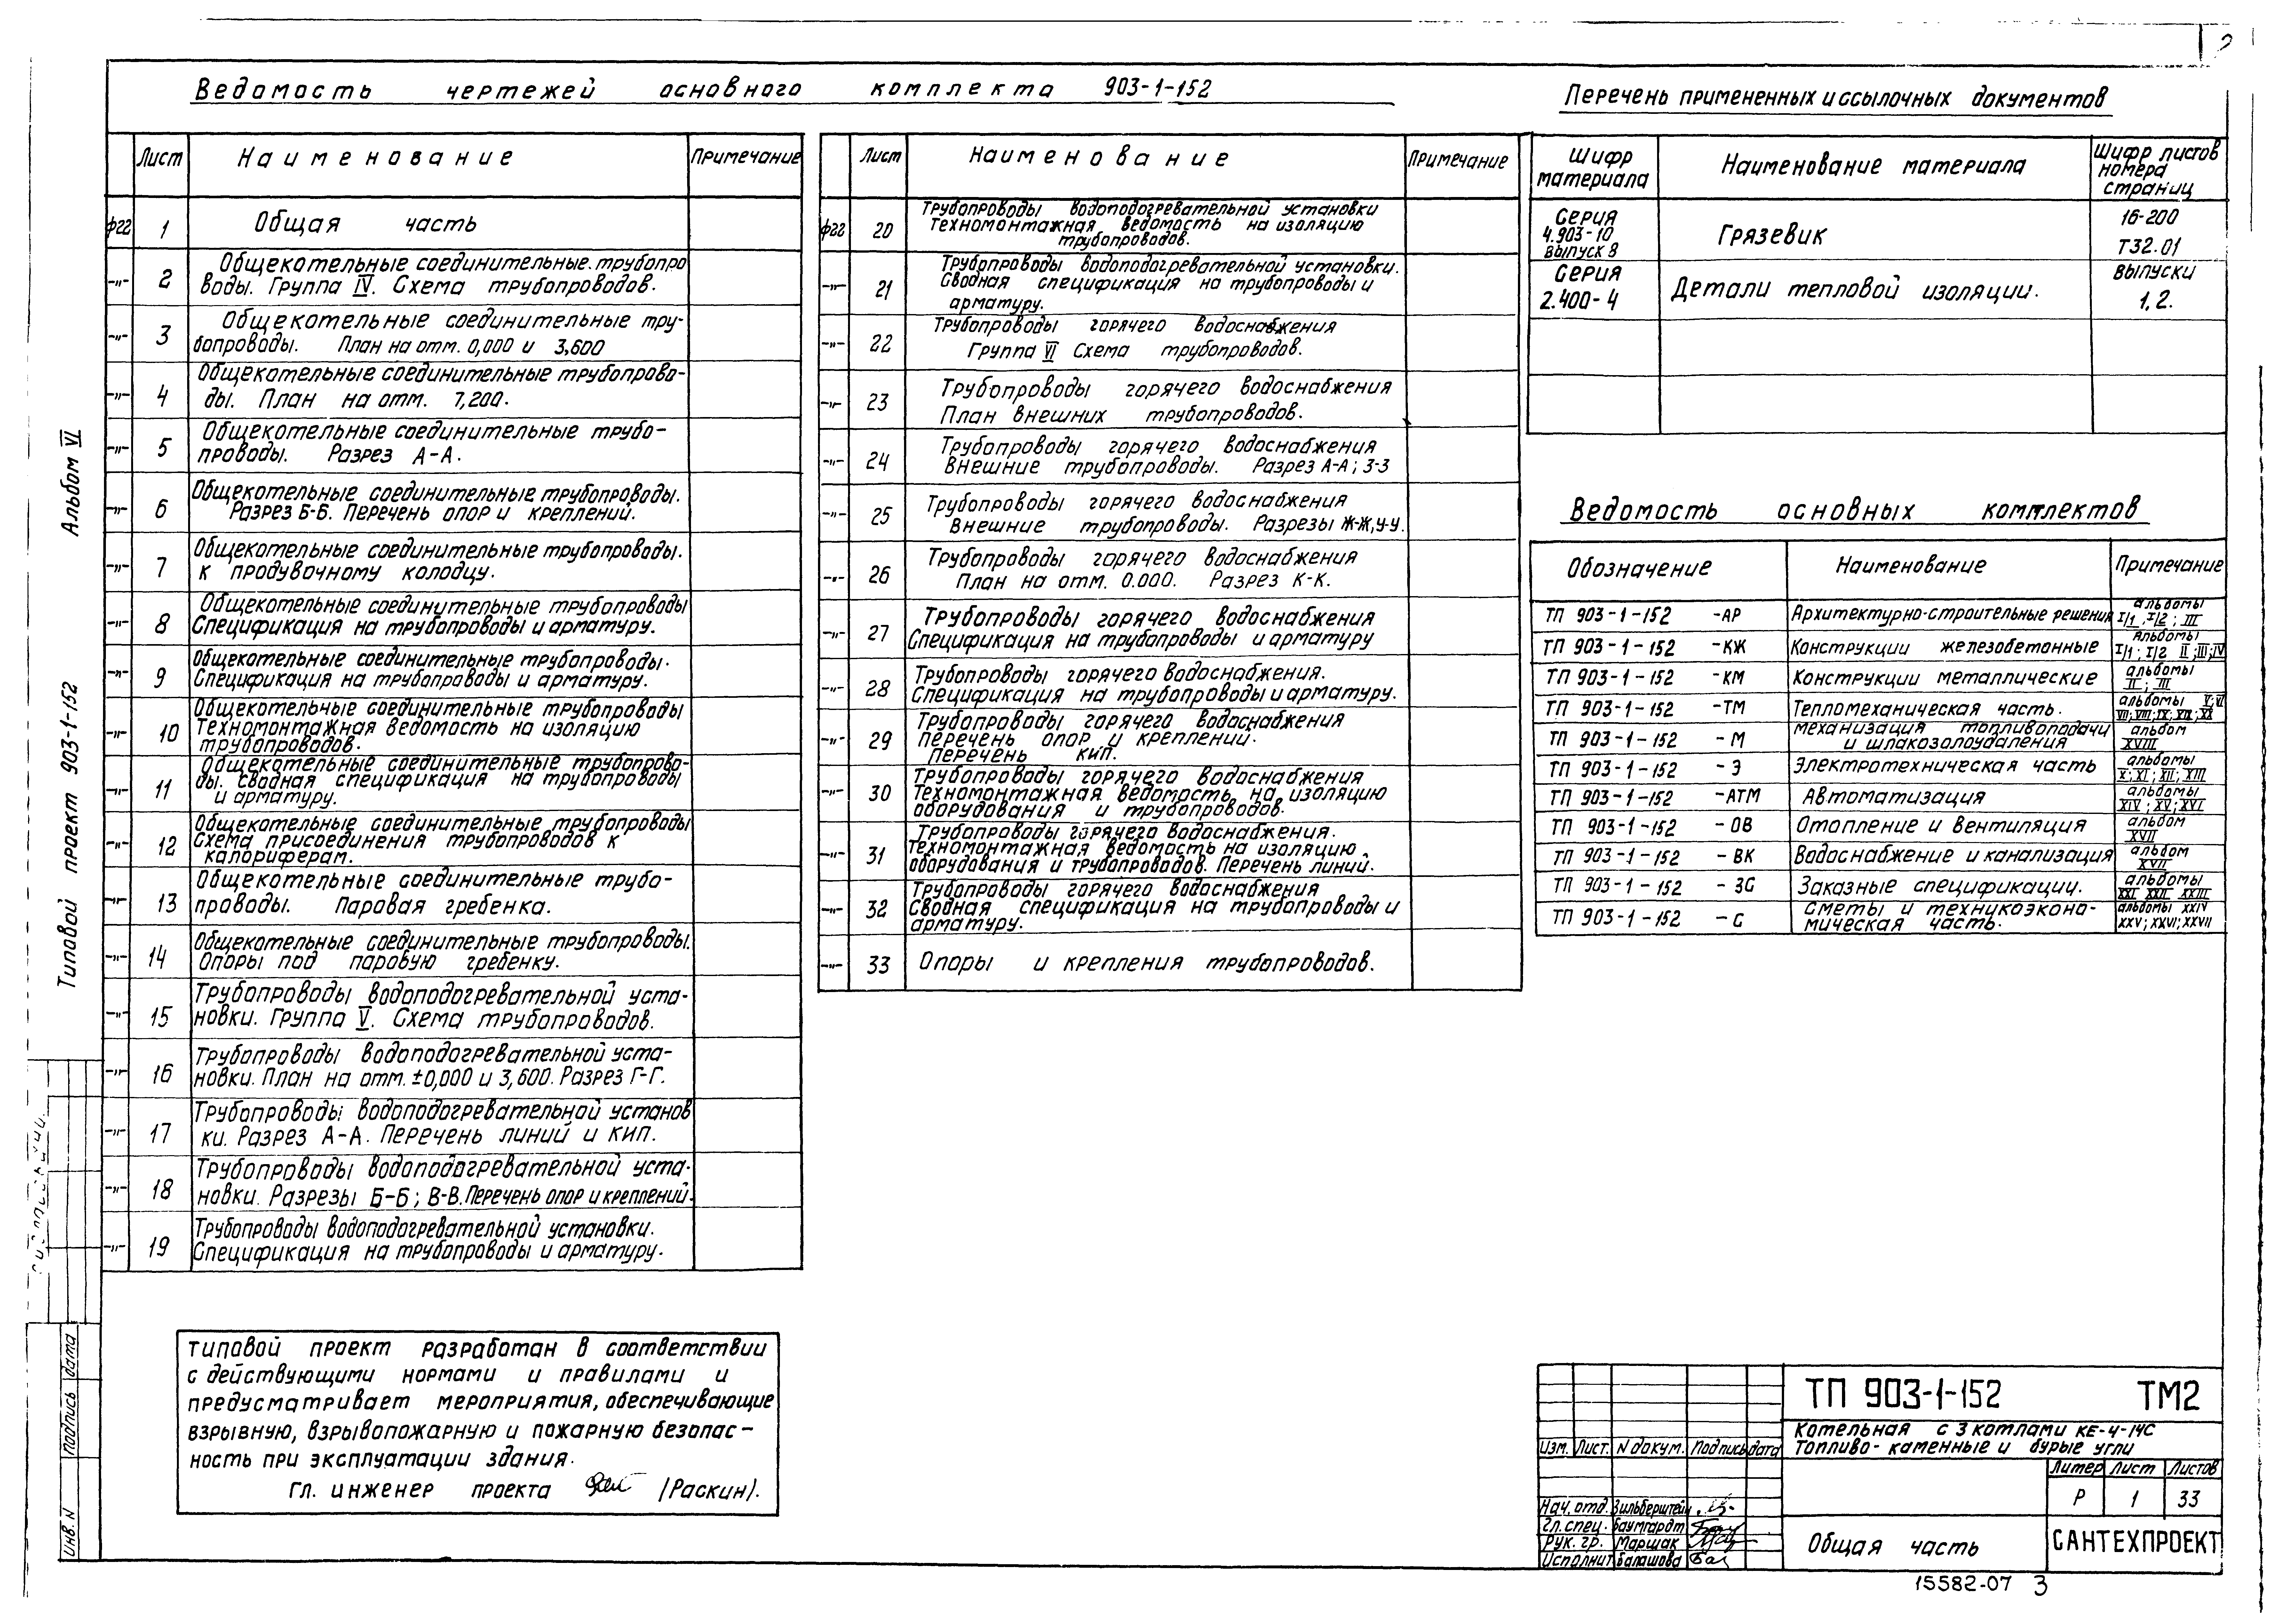 2
Ведомость чертежей основного комплекта 903-1-152
Лист Наименование Примечание
ФГГ 1 Общая часть
-"- 2 Общекотельные соединительные трубопро
воды. Группа IV. Схема трубопроводов.
-"- 3 Общекотельные соединительные тру-
бопроводы. План на отм. 0,000 и 3,600
-"- 4 Общекотельные соединительные трубопрово-
ды. План на отм. 7,200.
-"- 5 Общекотельные соединительные трубо-
проводы. Разрез А-А.
-"- 6 Общекотельные соединительные трубопроводы.
Разрез Б-Б. Перечень опор и креплений.
-"- 7 Общекотельные соединительные трубопроводы.
к продувочному колодцу.
-"- 8 Общекотельные соединительные трубопроводы
Спецификация на трубопроводы и арматуру.
-"- 9 Общекотельные соединительные трубопроводы.
Спецификация на трубопроводы и арматуру.
-"- 10 Общекотельные соединительные трубопроводы
Техномонтажная ведомость на изоляцию
трубопроводов.
-"- 11 Общекотельные соединительные трубопрово-
ды. Сводная спецификация на трубопроводы
и арматуру.
-"- 12 Общекотельные соединительные трубопроводы
Схема присоединения трубопроводов к
калориферам.
-"- 13 Общекотельные соединительные трубо-
проводы. Паровая гребенка.
-"- 14 Общекотельные соединительные трубопроводы.
Опоры под паровую гребенку.
-"- 15 Трубопроводы водоподогревательной уста-
новки. Группа V. Схема трубопроводов.
-"- 16 Трубопроводы водоподогревательной уста-
новки. План на отм. ±0,000 и 3,600. Разрез Г-Г.
-"- 17 Трубопроводы водоподогревательной установ
ки. Разрез А-А. Перечень линий и КИП.
-"- 18 Трубопроводы водоподогревательной уста-
новки. Разрезы Б-Б; В-В. Перечень опор и креплений.
-"- 19 Трубопроводы водоподогревательной установки.
Спецификация на трубопроводы и арматуру.
Лист Наименование Примечание
ФГГ 20 Трубопроводы водоподогревательной установки
Техномонтажная ведомость на изоляцию
трубопроводов.
-"- 21 Трубопроводы водоподогревательной установки.
Сводная спецификация на трубопроводы и
арматуру.
-"- 22 Трубопроводы горячего водоснабжения
Группа VI Схема трубопроводов.
-"- 23 Трубопроводы горячего водоснабжения
План внешних трубопроводов.
-"- 24 Трубопроводы горячего водоснабжения
Внешние трубопроводы. Разрез А-А; З-З
-"- 25 Трубопроводы горячего водоснабжения
Внешние трубопроводы. Разрезы Ж-Ж, И-И.
-"- 26 Трубопроводы горячего водоснабжения
План на отм. 0.000. Разрез К-К.
-"- 27 Трубопроводы горячего водоснабжения
Спецификация на трубопроводы и арматуру
-"- 28 Трубопроводы горячего водоснабжения.
Спецификация на трубопроводы и арматуру.
-"- 29 Трубопроводы горячего водоснабжения
перечень опор и креплений.
Перечень КИП.
-"- 30 Трубопроводы горячего водоснабжения
Техномонтажная ведомость на изоляцию
оборудования и трубопроводов.
-"- 31 Трубопроводы горячего водоснабжения.
Техномонтажная ведомость на изоляцию
оборудования и трубопроводов. Перечень линий.
-"- 32 Трубопроводы горячего водоснабжения
Сводная спецификация на трубопроводы и
арматуру.
-"- 33 Опоры и крепления трубопроводов.
Перечень примененных и ссылочных документов
Шифр материала Наименование материала Шифр листов номера страниц
Серия 4.903-10 выпуск 8 Грязевик 16-200 Т32.01
Серия 2.400-4 Детали тепловой изоляции. выпуски 1, 2.
Ведомость основных комплектов
Обозначение Наименование Примечание
ТП 903-1-152 -АР Архитектурно-строительные решения альбомы I/1, I/2; III
ТП 903-1-152 -КЖ Конструкции железобетонные Альбомы I/1; I/2 II; III; IV
ТП 903-1-152 -КМ Конструкции металлические альбомы II; III
ТП 903-1-152 -ТМ Тепломеханическая часть. альбомы V; VI VII; VIII; IX; XIX; XX
ТП 903-1-152 -М Механизация топливоподачи и шлакозолоудаления альбом XVIII
ТП 903-1-152 -Э Электротехническая часть альбомы X; XI; XII; XIII
ТП 903-1-152 -АТМ Автоматизация альбомы XIV; XV; XVI
ТП 903-1-152 -ОВ Отопление и вентиляция альбом XVII
ТП 903-1-152 -ВК Водоснабжение и канализация альбом XVII
ТП 903-1-152 -ЗС Заказные спецификации. альбомы XXI XXII XXIII
ТП 903-1-152 -С Сметы и техникоэконо-мическая часть. альбомы XXIV XXV; XXVI; XXVII
Типовой проект 903-1-152 Альбом VI
Инв. N Подпись дата
Типовой проект разработан в соответствии
с действующими нормами и правилами и
предусматривает мероприятия, обеспечивающие
взрывную, взрывопожарную и пожарную безопас-
ность при эксплуатации здания.
Гл. инженер проекта /Раскин/.
ТП 903-1-152 ТМ2
Котельная с 3 котлами КЕ-4-14С
Топливо - каменные и бурые угли
Изм. Лист. N докум. Подпись дата
Литер Лист Листов
Р 1 33
Нач. отд. Зильберштейн
Гл. спец. Баумгардт
Рук. гр. Маршак
Исполнит Балашова
Общая часть
САНТЕХПРОЕКТ
15582-07 3